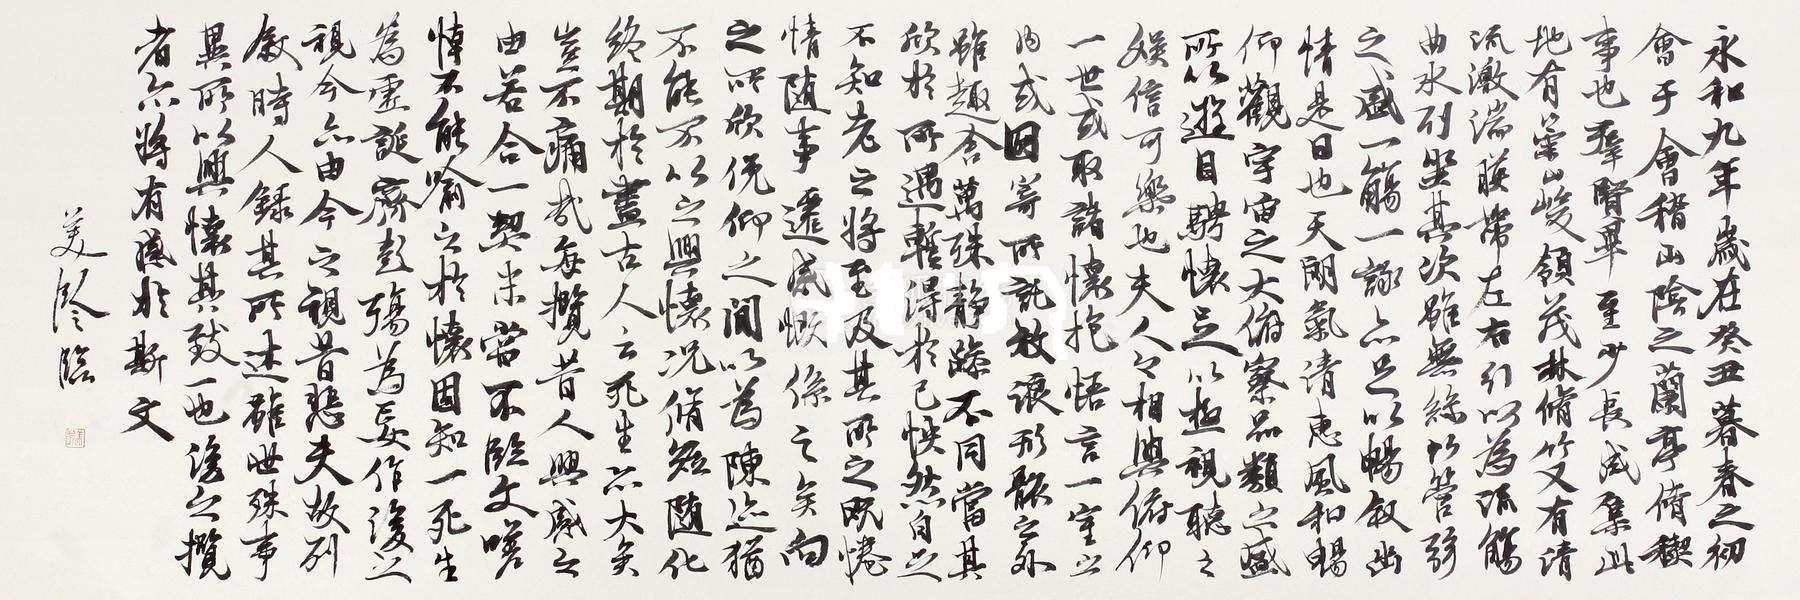 永和九年歲在癸丑暮春之初
會于會稽山陰之蘭亭脩稧
事也羣賢畢至少長咸集此
地有崇山峻領茂林脩竹又有清
流激湍暎帶左右引以為流觴
曲水列坐其次雖無絲竹管弦
之盛一觴一詠亦足以暢敘幽
情是日也天朗氣清惠風和暢
仰觀宇宙之大俯察品類之盛
所以遊目騁懷足以極視聽之
娛信可樂也夫人之相與俯仰
一世或取諸懷抱悟言一室之
內或因寄所託放浪形骸之外
雖趣舍萬殊靜躁不同當其
欣於所遇暫得於己怏然自足
不知老之將至及其所之既惓
情隨事遷感慨係之矣向
之所欣俛仰之間以為陳迹猶
不能不以之興懷况脩短隨化
終期於盡古人云死生亦大矣
豈不痛哉每攬昔人興感之
由若合一契未嘗不臨文嗟
悼不能喻之於懷固知一死生
為虛誕齊彭殤為妄作後之
視今亦由今之視昔悲夫故列
敘時人錄其所述雖世殊事
異所以興懷其致一也後之攬
者亦將有感於斯文
美
臨